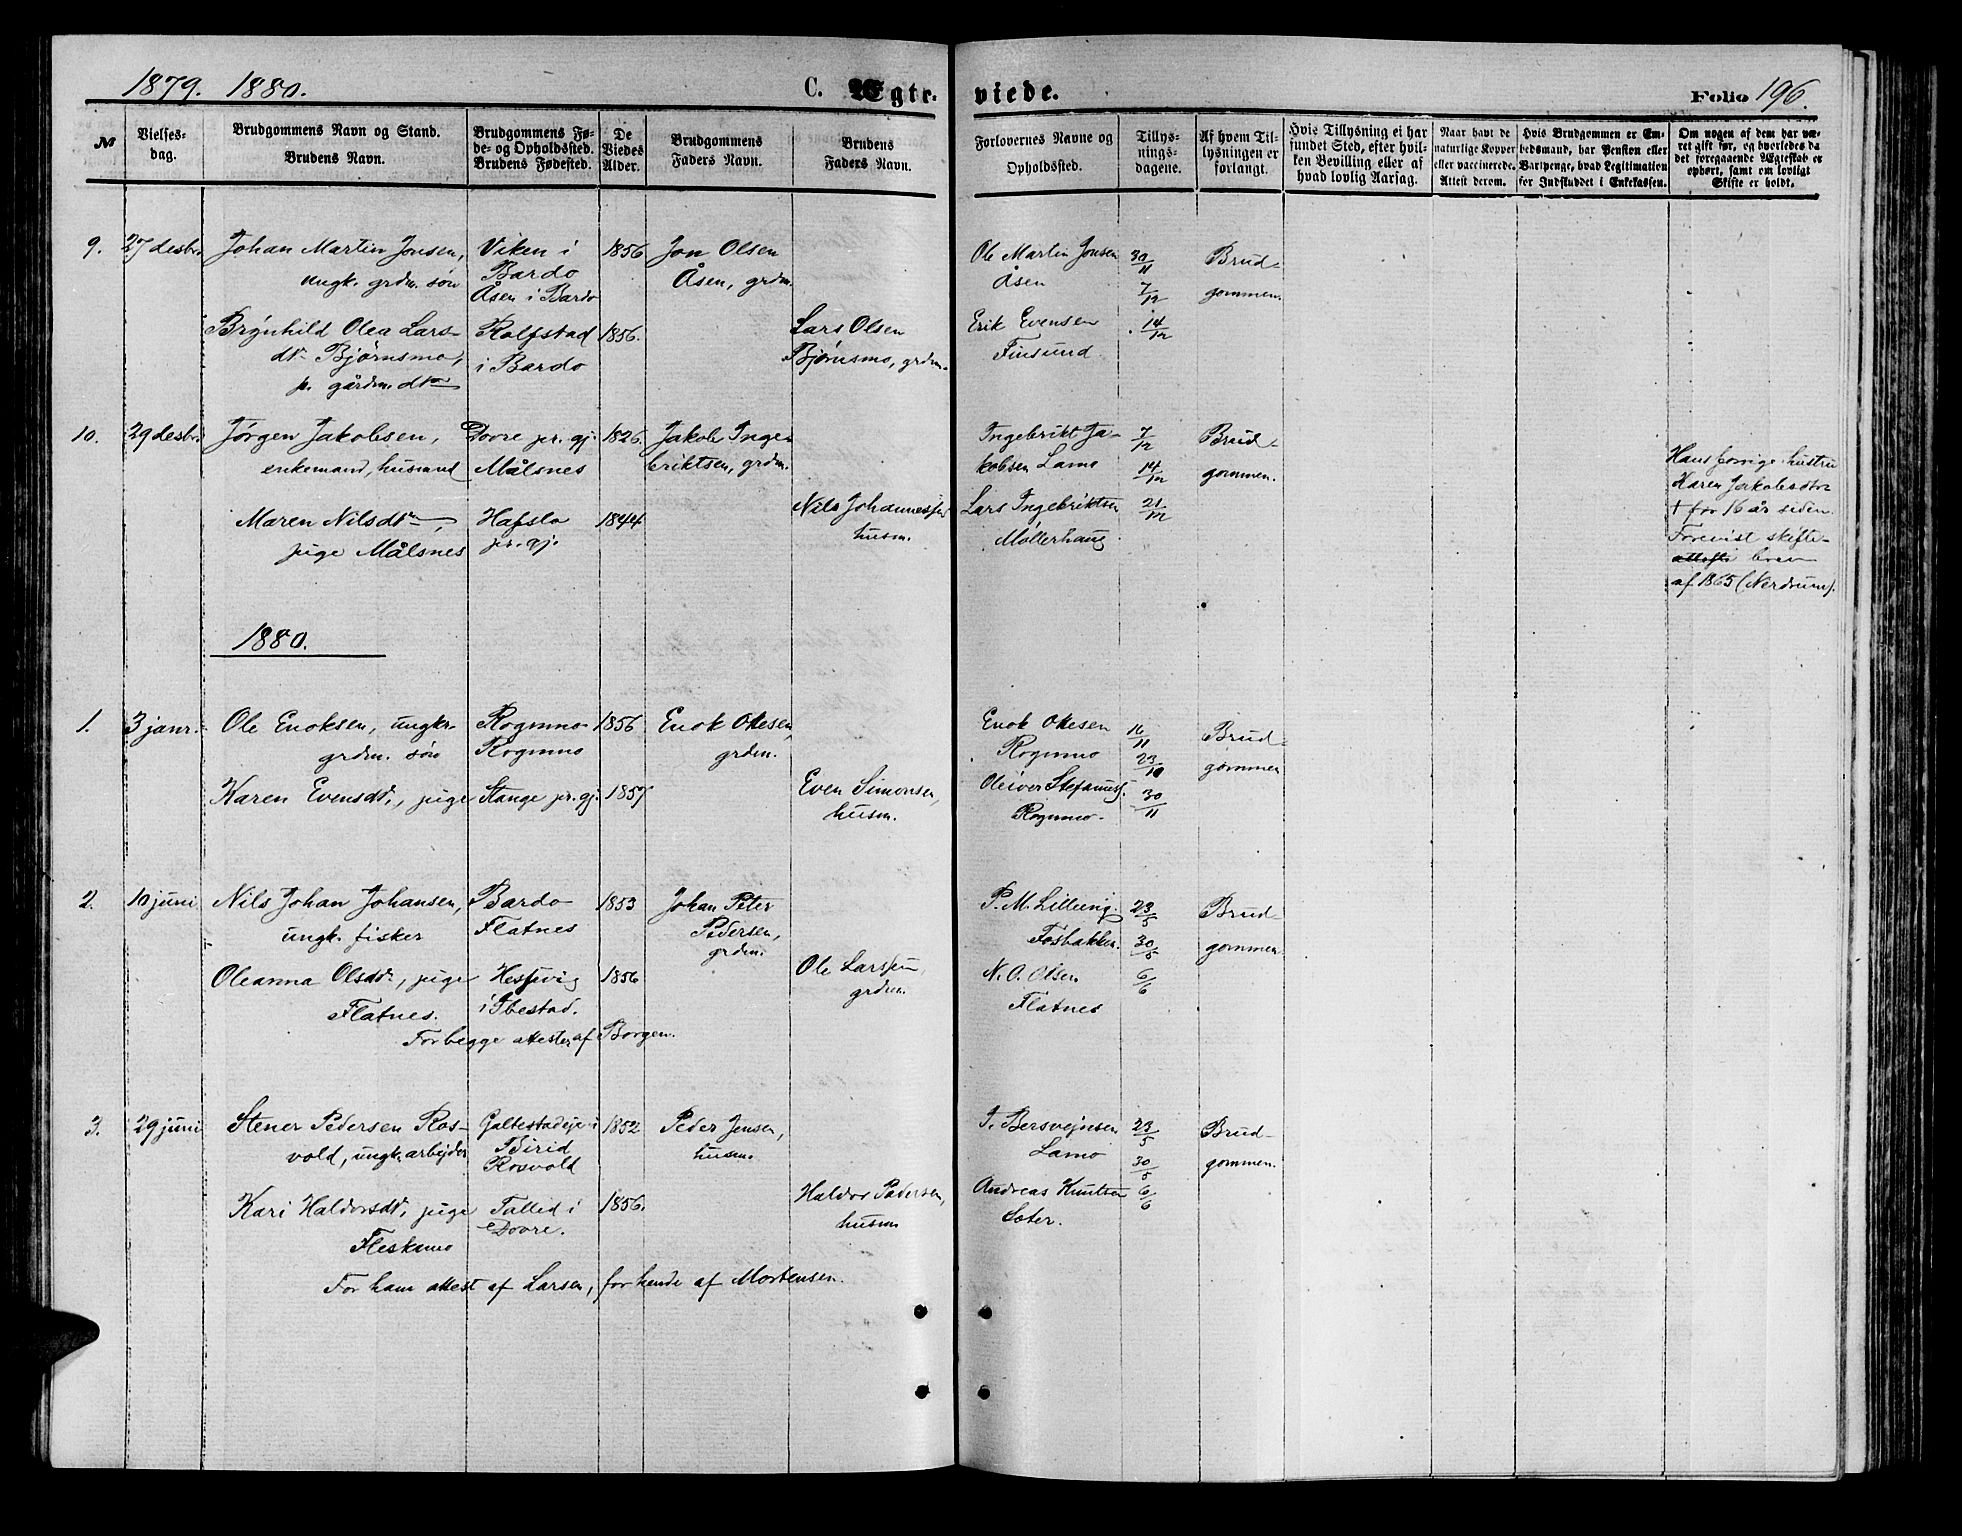 1879. 1880. C. Ægteviede. Folio 196.
№
Vielsesdag.
Brudgommens Navn og Stand.
Brudens Navn.
Brudgommens Føde- og Opholdssted.
Brudens Fødested.
De Viedes Alder.
Brudgommens Faders Navn.
Brudens Faders Navn.
Forlovernes Navne og Opholdssted.
Tillysningsdagene.
Af hvem Tillysningen er forlangt.
Hvis Tillysning ei har fundet Sted, efter hvilken Bevilling eller af hvad lovlig Aarsag.
Naar havt de naturlige Kopper eller vaccinerede. Attest derom.
Hvis Brudgommen er Embedsmand, har Pension eller Vartpenge, hvad Legitimation for Indskuddet i Enkekassen.
Om nogen af dem har været gift før, og hvorledes da det foregaaende Ægteskab er ophørt, samt om lovligt Skifte er holdt.
9. 27 desbr. Johan Martin Jonsen, Viken i 1856 Jon Olsen Ole Martin Jonsen 30/11 Brud-
ungk. grdm. søn Bardo Åsen, grdm. Åsen 7/12 gommen.
Åsen i Bardo
Brynhild Olea Lars- Rolfstad 1856. Lars Olsen Erik Evensen 14/12
dtr Bjørnsmo, i Bardo Bjørnsmo, grdm. Finsund.
p. gårdm. dtr
10. 29 desbr. Jørgen Jakobsen, Dovre pr. gj. 1826. Jakob Inge- Ingebrikt Ja- 7/12 Brud-
enkemand, husmand Målsnes briktsen, grdm. kobsen Lamo 14/12 gommen.
Maren Nilsdtr, Hafslo 1844 Nils Johannessen Lars Ingebriktsen 21/12
pige Målsnes pr. gj. husm. Møllerhaug.
Hans forrige hustru
Karen Jakobsdtr
† for 16 år siden.
Forevist skifte-
brev
af 1865 (Nerdrum).
1880.
1. 3 janr. Ole Enoksen, ungkr. Rognmo 1856 Enok Ottesen, Enok Ottesen 16/11 Brud-
grdm. søn Rognmo grdm. Rognmo 23/10 gommen
Karen Evensdtr., pige Stange pr. gj. 1857 Even Simonsen, Oleiver Stefanuss. 30/11
husm. Rognmo.
2. 10 juni Nils Johan Johansen, Bardo 1853 Johan Peter P. M. Lilleeng. 23/5 Brud-
ungk. fisker Flatnes Pedersen, Fosbakken. 30/5 gommen
grdm.
Oleanna Olsdtr., pige Hessvig 1856 Ole Larssen N. O. Olsen 6/6
Flatnes. i Ibestad. grdm. Flatnes
For begge attester af Borgen.
3. 29 juni Stener Pedersen Ros- Galtestadeje i 1852 Peder Jensen, T. Bersvejnsen 23/5 Brud-
vold, ungk. arbejder Birid husm. Lamo 30/5 gommen.
Rosvold
Kari Haldorsdtr, pige Tallid i 1856. Haldor Pedersen, Andreas Knutsen 6/6
Fleskmo Dovre. husm Sæter.
For ham attest af Larsen, for hende af Mortensen.